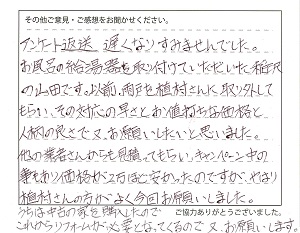 その他ご意見・ご感想をお聞かせください。
アンケート返送 遅くなりすみませんでした。
お風呂の給湯器を取り付けていただいた稲沢
の山田です。以前、雨戸を植村さんに取り外して
もらい、その対応の早さとお値打ちな価格と
人柄の良さで又、お願いしたいと思いました。
他の業者さんからも見積ってもらい、キャンペーン中の
事もあり価格が2万ほど安かったのですが、やはり
植村さんの方がよく今回お願いしました。
うちは中古の家を購入したので
ご協力ありがとうございました。
これからリフォームが必要となってくるので又、お願いします。